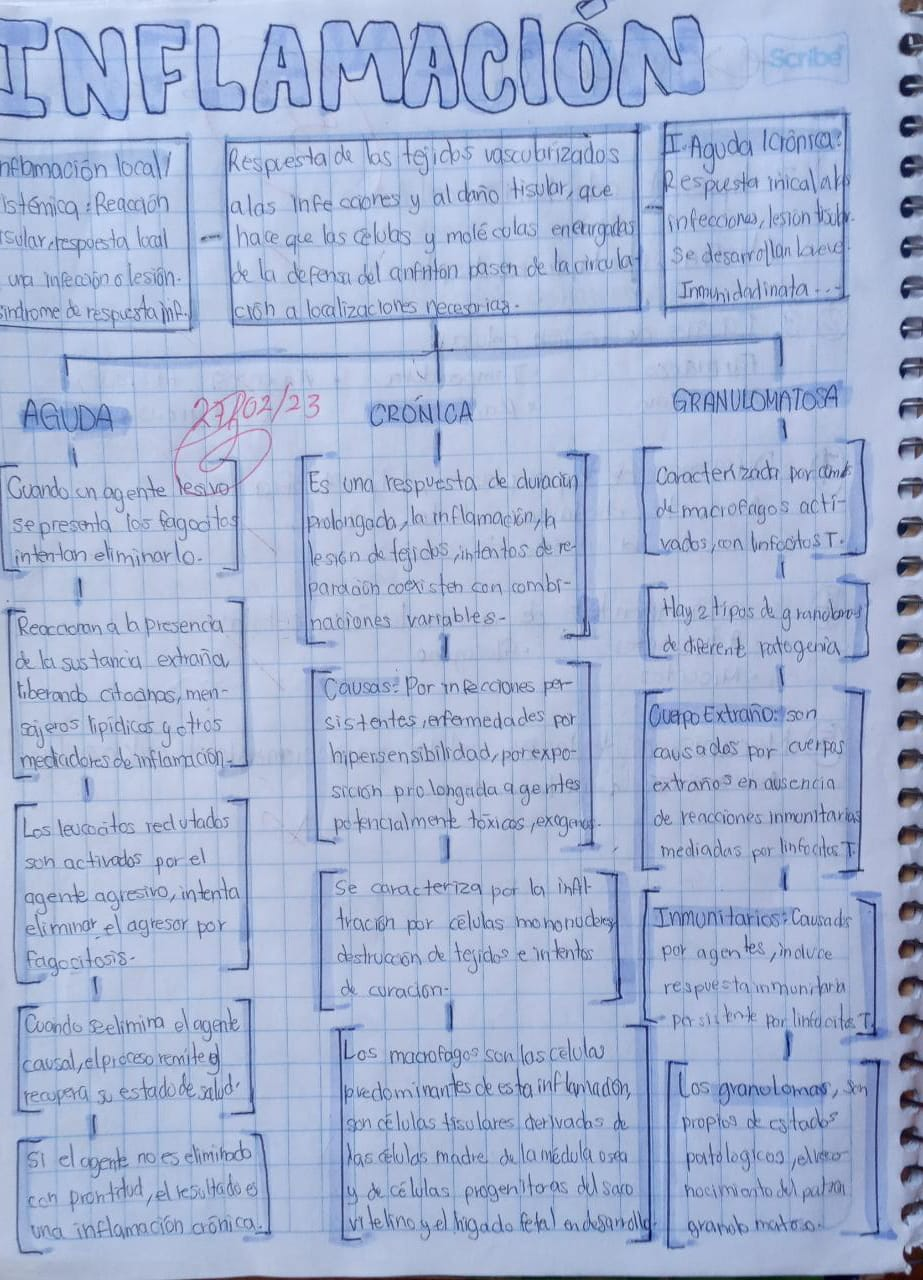 INFLAMACIÓN
Scribe
nflamación local/
istémica: Reacción
isular, respuesta local
una infección o lesión.
índrome de respuesta inf.
Respuesta de las tejidos vascularizados
a las infecciones y al daño tisular, que
hace que las células y moléculas encargadas
de la defensa del anfitrión pasen de la circula
ción a localizaciones necesarias.
I. Aguda / Crónica:
Respuesta inical a
infecciones, lesión tisular.
Se desarrollan breve
Inmunidad inata...
AGUDA
27/02/23
Cuando un agente lesivo
se presenta los fagocitos
intentan eliminarlo.
Reaccionan a la presencia
de la sustancia extraña,
liberando citocinas, men-
sajeros lipídicos y otros
mediadores de inflamación.
Los leucocitos reclutados
son activados por el
agente agresivo, intenta
eliminar el agresor por
fagocitosis.
Cuando se elimina el agente
causal, el proceso remite y
recupera su estado de salud.
Si el agente no es eliminado
con prontitud, el resultado es
una inflamación crónica.
CRÓNICA
Es una respuesta de duración
prolongada, la inflamación, la
lesión de tejidos, intentos de re-
paración coexisten con combi-
naciones variables.
Causas: Por infecciones per-
sistentes, enfermedades por
hipersensibilidad, por expo-
sición prolongada a agentes
potencialmente tóxicos, exógenos.
Se caracteriza por la infil-
tración por células mononucleares
destrucción de tejidos e intentos
de curación.
Los macrofagos son las celulas
predominantes de esta inflamación,
son células tisulares derivadas de
las células madre de la médula osea
y de células progenitoras del saco
vitelino y el higado fetal en desarrollo.
GRANULOMATOSA
Caracterizada por
de macrofagos acti-
vados, con linfocitos T.
Hay 2 tipos de granulomas
de diferent patogenia.
Cuerpo Extraño: son
causados por cuerpos
extraños en ausencia
de reacciones inmunitarias
mediadas por linfocitos T.
Inmunitarios: Causado
por agentes, induce
respuesta inmunitaria
persistente por linfocitos T.
Los granulomas, son
propios de estados
patologicos, el reco-
nocimiento del patron
granulomatoso.